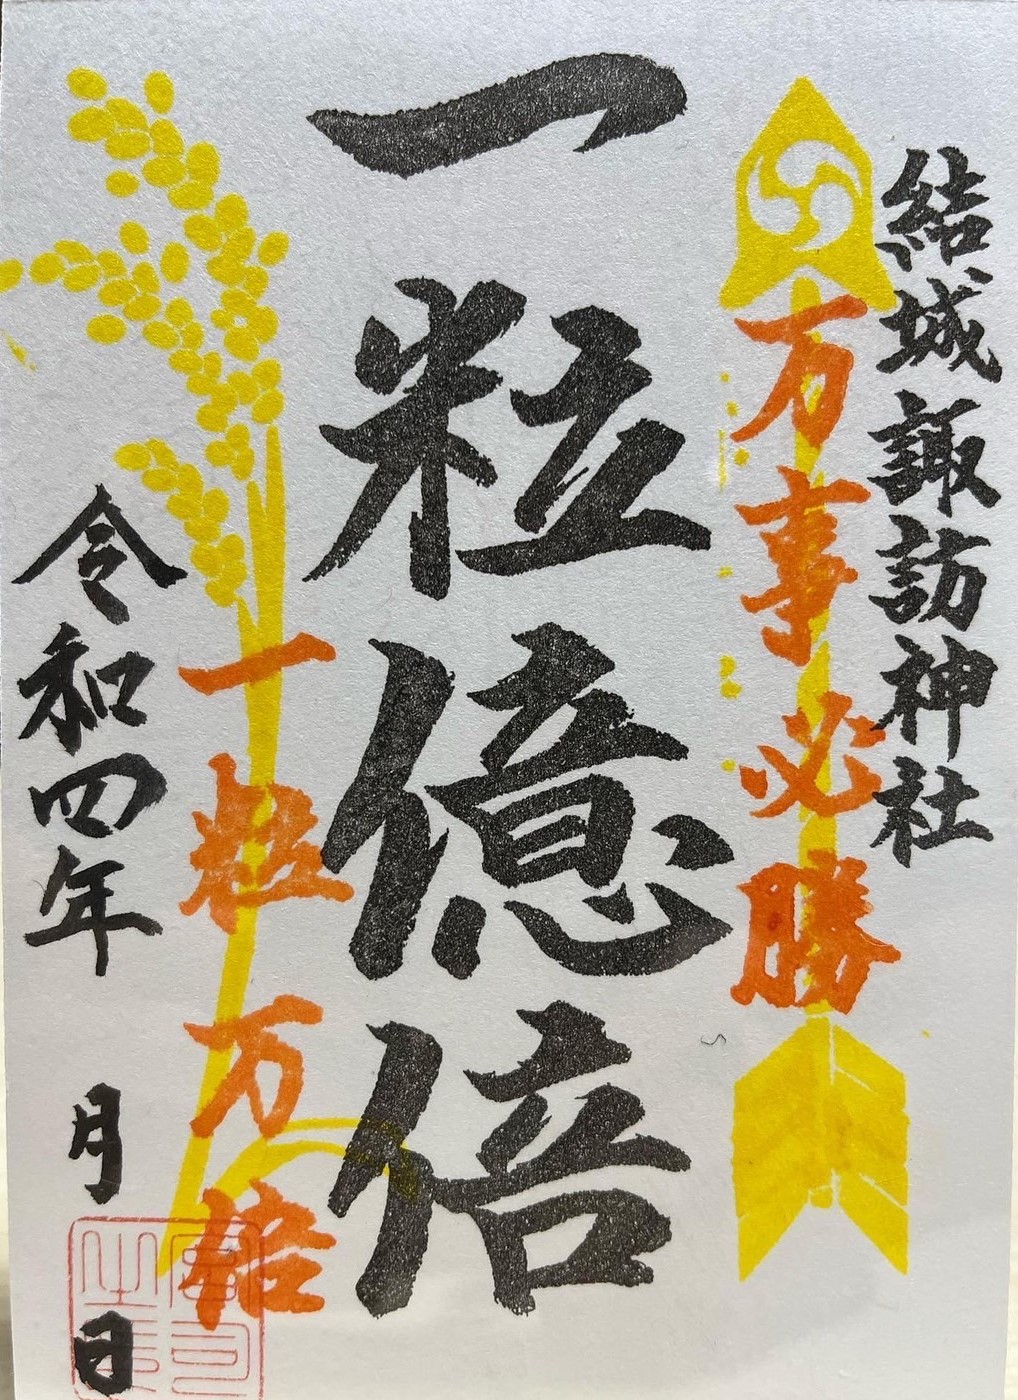 結城諏訪神社
万事必勝
一粒億倍
一粒万倍
令和四年 月 日